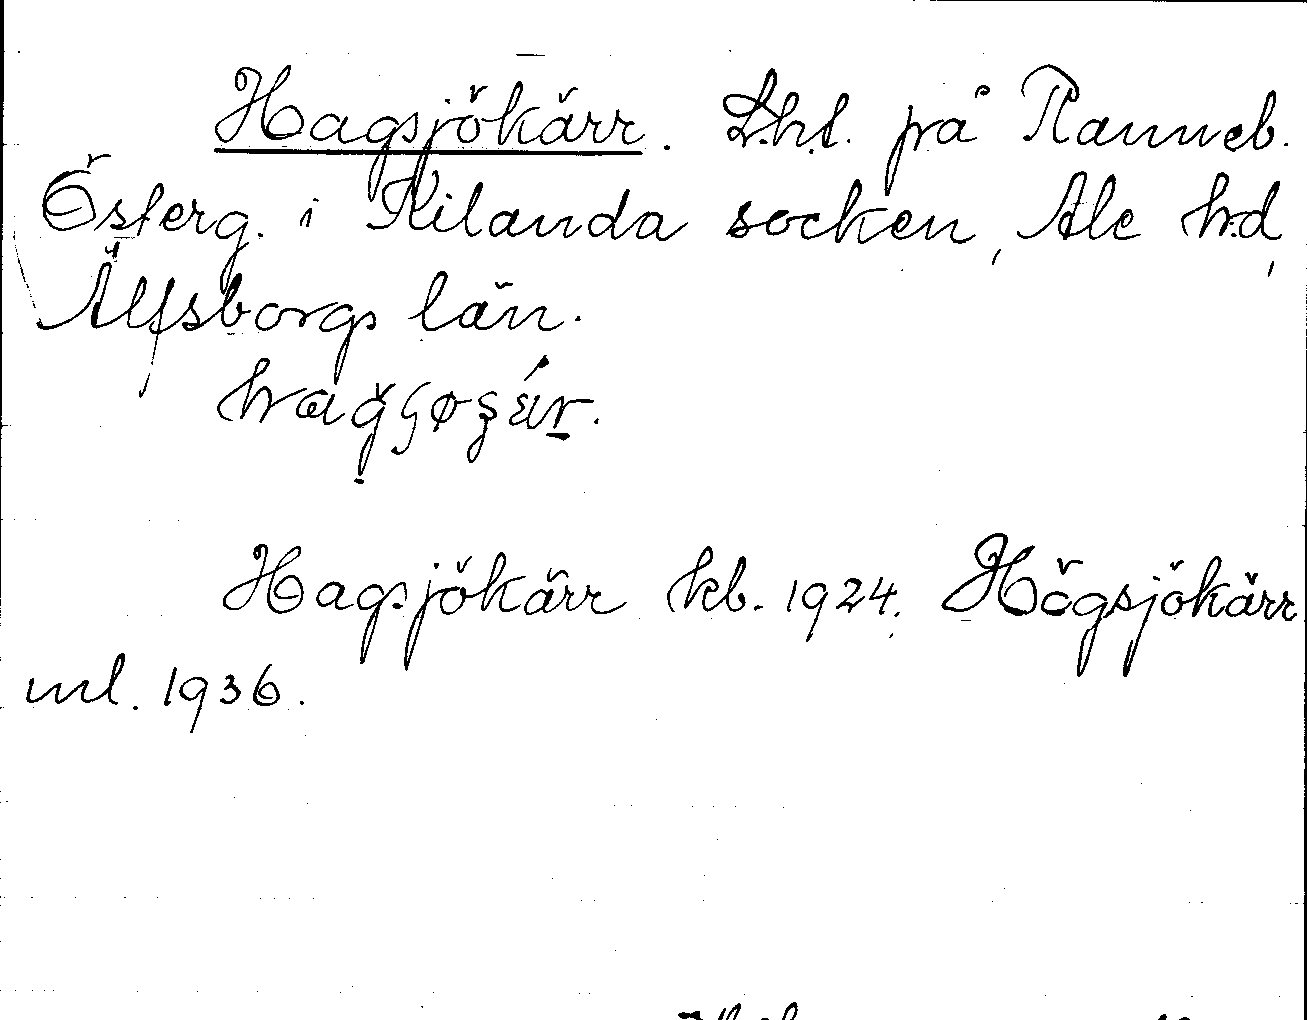 Hagsjökärr. L.h.t. på Ranneb.
Österg. i Kilanda socken, Ale h:d,
Älfsborgs län.
Hagsjökärr kb. 1924. Högsjökärr
ml. 1936.